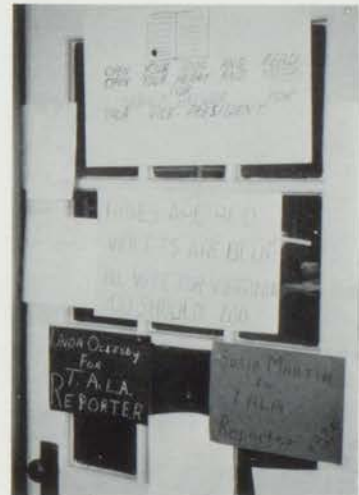 OPEN YOUR EYES AND READ
OPEN YOUR HEART AND
FOR
FOR
TALA VICE PRESIDENT
ROSES ARE RED
VIOLETS ARE BLUE
SHOULD YOU
LINDA OGLESBY
FOR
TALA
REPORTER
SUSIE MARTIN
for
TALA
Reporter